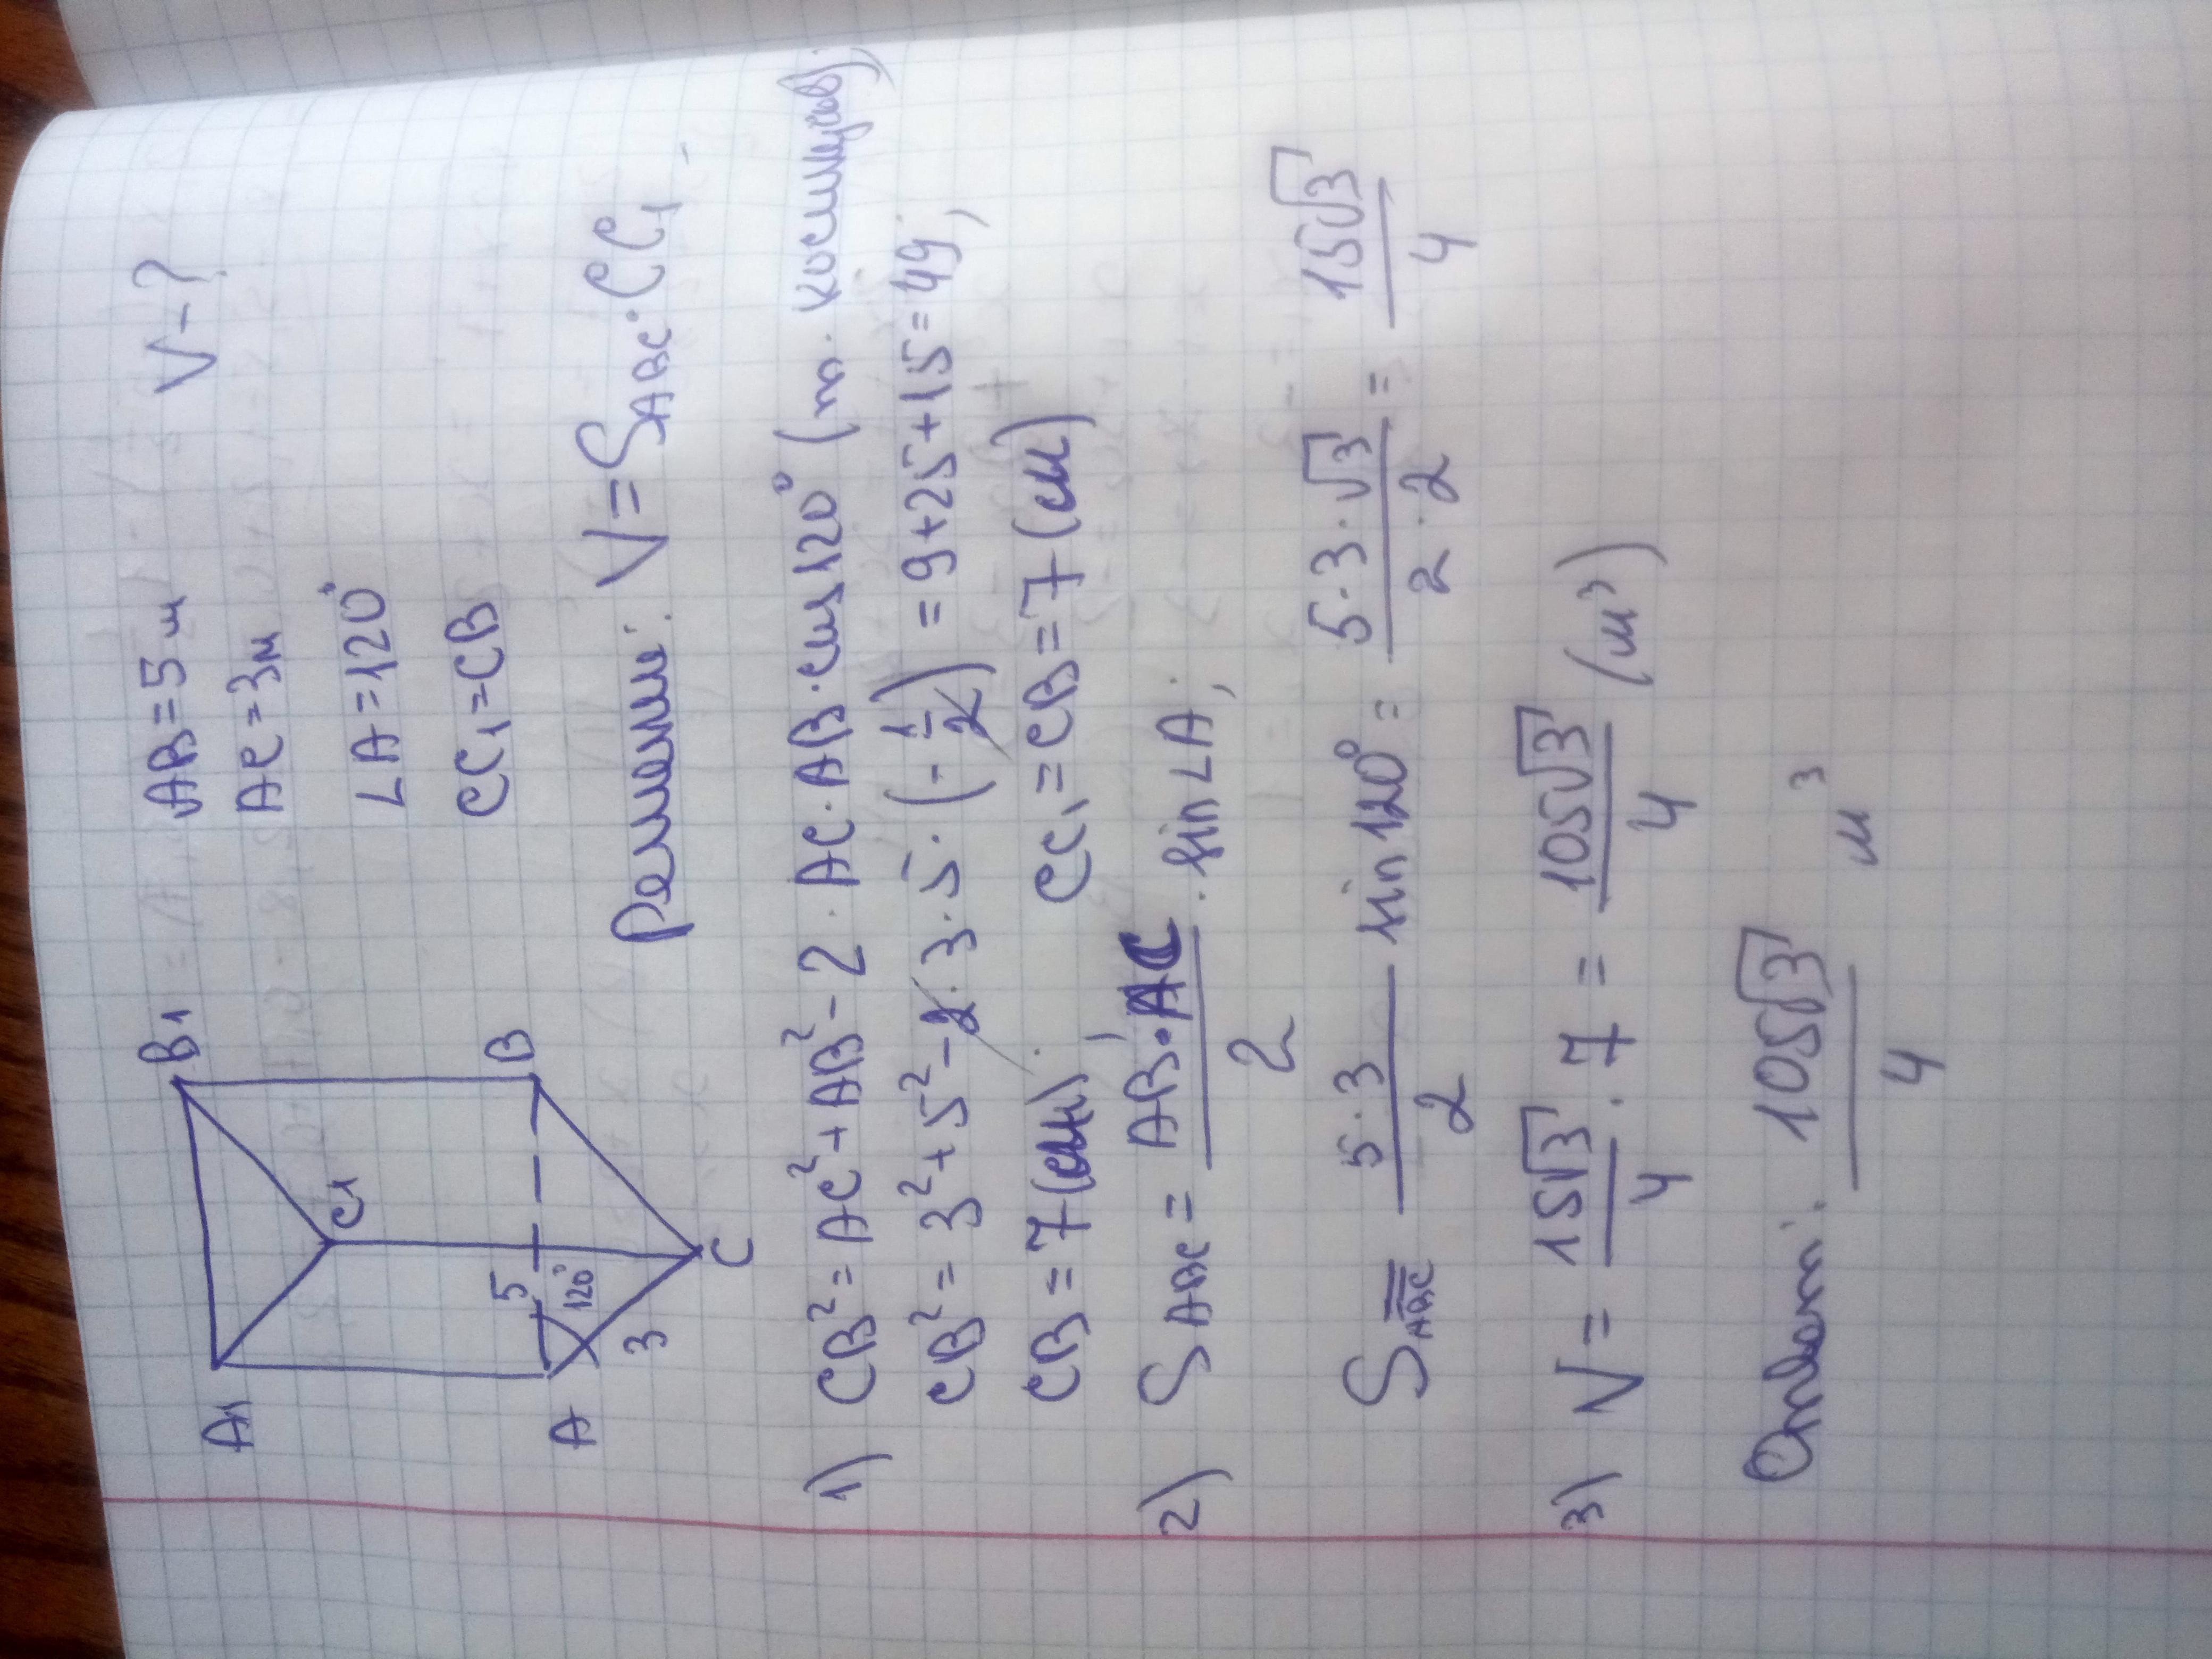 A1 B1 AB=5м V-?
C1 AC=3м
∠A=120°
A 5 120° B CC₁=CB
3 C
Решение: V=S_ABC·CC₁
1) CB²=AC²+AB²-2·AC·AB·cos120° (т. косинусов);
CB²=3²+5²-2·3·5·(-1/2)=9+25+15=49;
CB=7(см); CC₁=CB=7(см)
2) S_ABC=AB·AC/2·sin∠A;
S_ABC 5·3/2 sin120°=5·3·√3/2·2=15√3/4
3) V=15√3/4·7=105√3/4 (м³)
Ответ: 105√3/4 м³